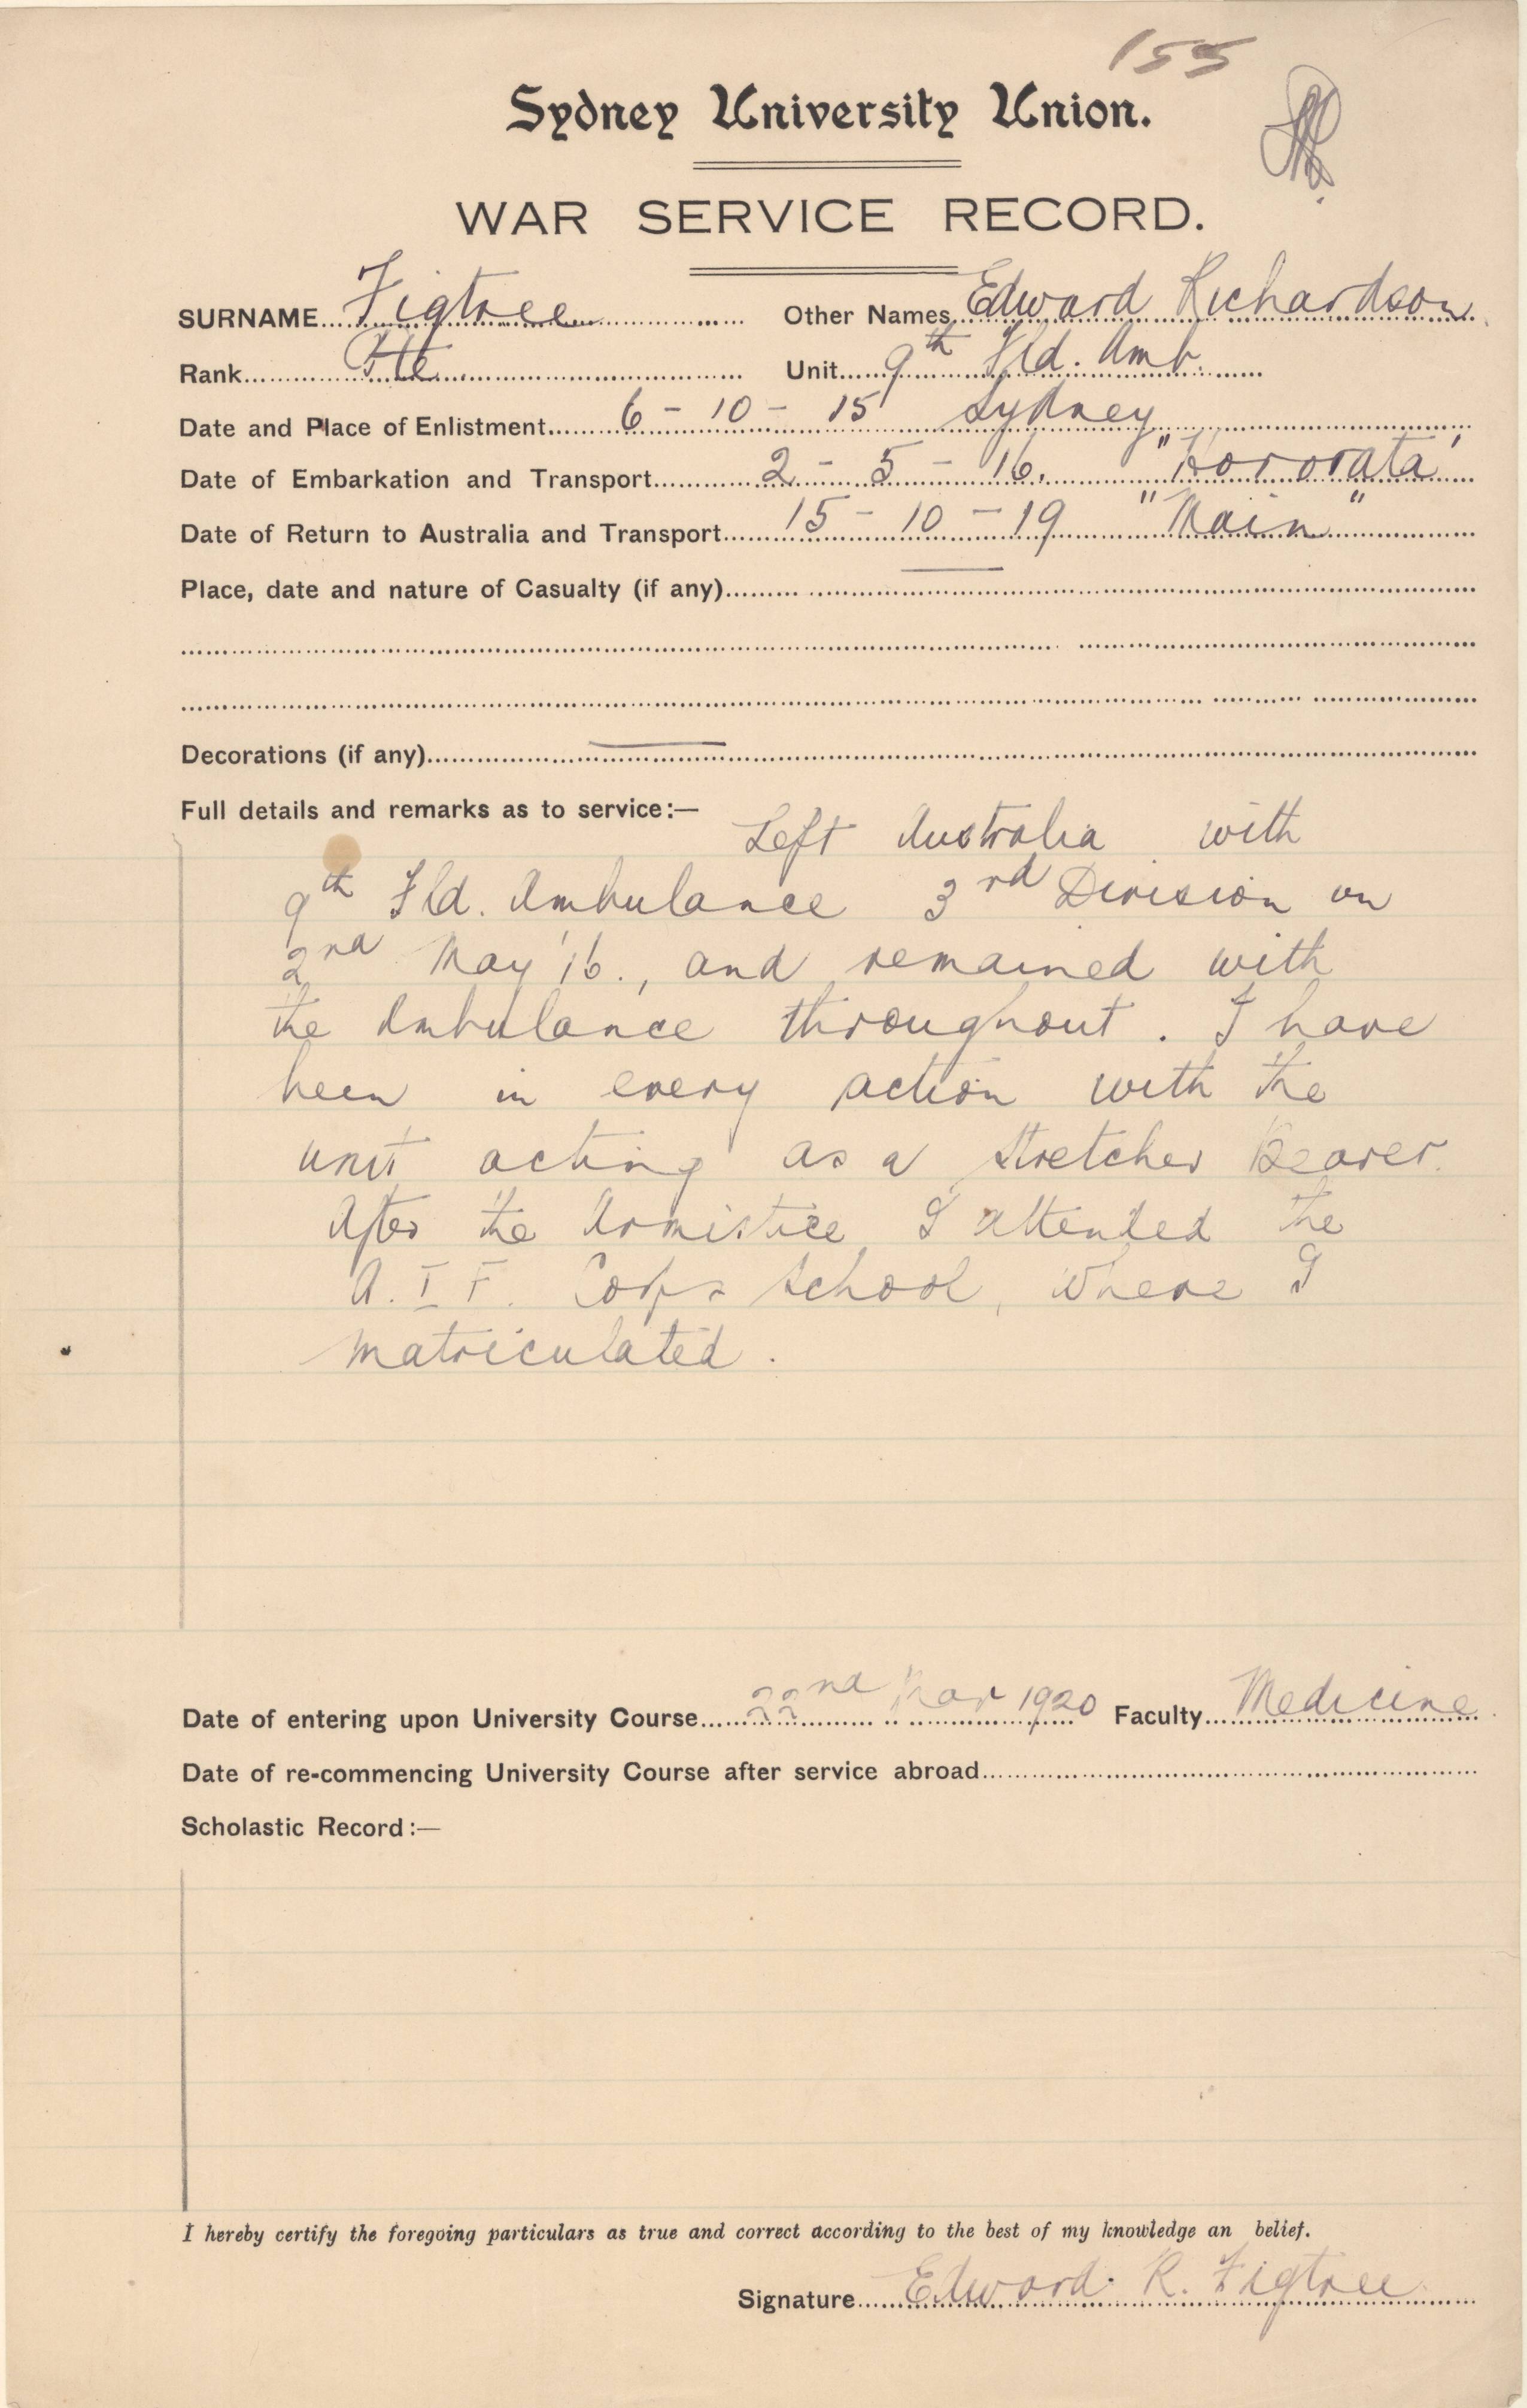 155
Sydney University Union.
WAR SERVICE RECORD.
SURNAME Figtree Other Names Edward Richardson
Rank Pte. Unit 9th Fld. Amb.
Date and Place of Enlistment 6 - 10 - 15 Sydney
Date of Embarkation and Transport 2 - 5 - 16. "Hororata"
Date of Return to Australia and Transport 15 - 10 - 19 "Main"
Place, date and nature of Casualty (if any) —
Decorations (if any) —
Full details and remarks as to service:—
Left Australia with
9th Fld. Ambulance 3rd Division on
2nd May '16., and remained with
the Ambulance throughout. I have
been in every action with the
unit acting as a Stretcher Bearer.
After the Armistice I attended the
A.I.F. Corps School, where I
matriculated.
Date of entering upon University Course 22nd Mar 1920 Faculty Medicine.
Date of re-commencing University Course after service abroad
Scholastic Record:—
I hereby certify the foregoing particulars as true and correct according to the best of my knowledge an belief.
Signature Edward R. Figtree